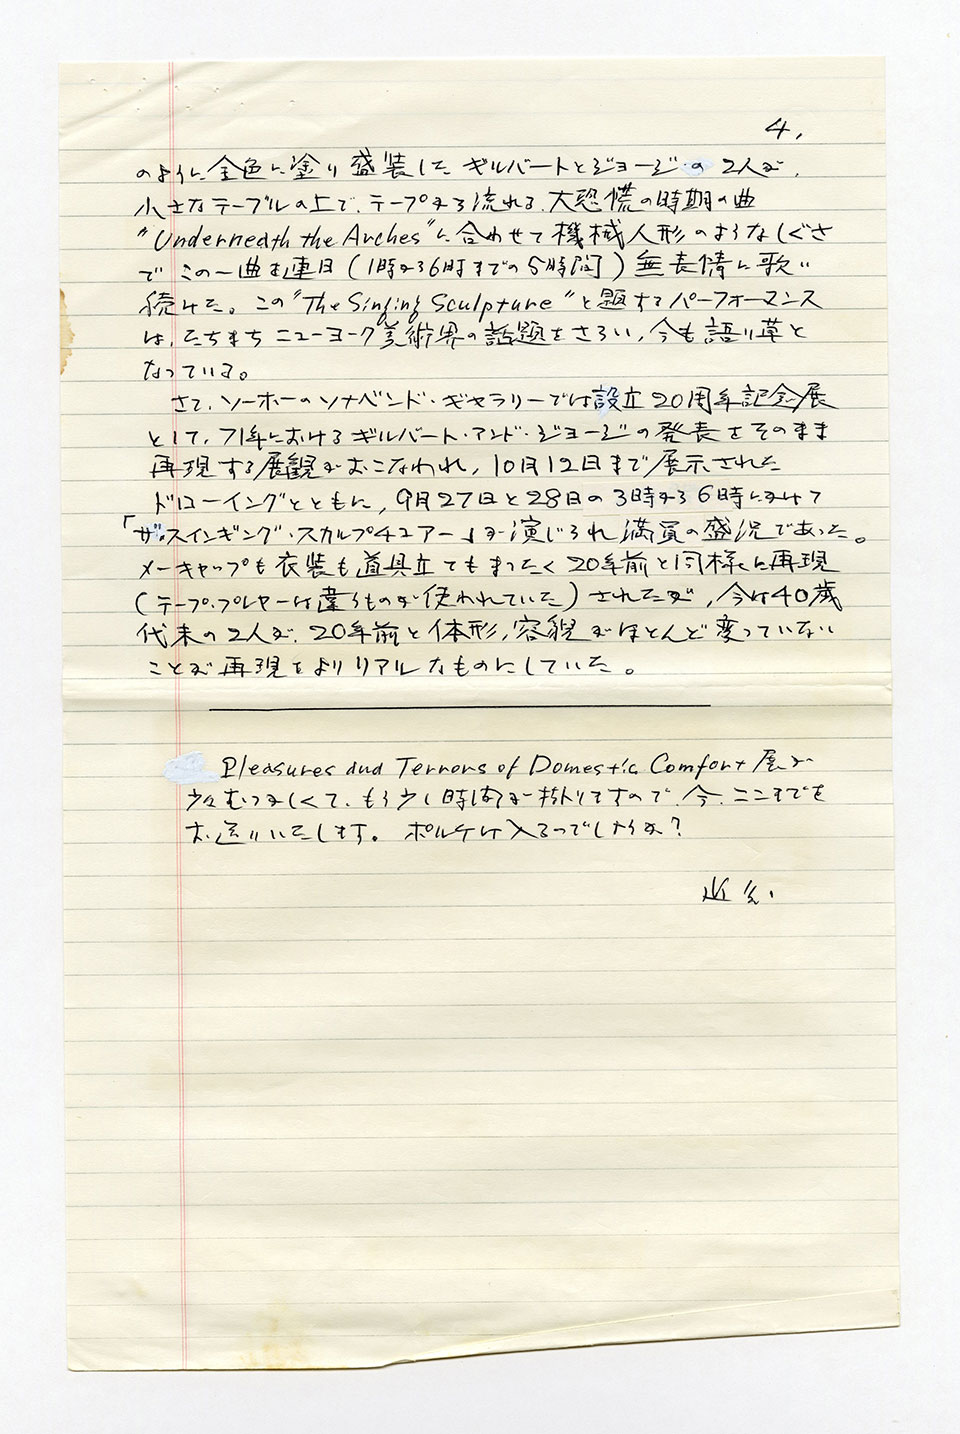 4.
のように金色に塗り盛装した ギルバートとジョージの2人が、
小さなテーブルの上で、テープから流れる、大恐慌の時期の曲
"Underneath the Arches"に合わせて機械人形のようなしぐさ
で この一曲を連日(1時から6時までの5時間)無表情に歌い
続けた。この"The Singing Sculpture"と題するパーフォーマンス
は、たちまち ニューヨーク美術界の話題をさらい、今も語り草と
なっている。
さて、ソーホーのソナベンド・ギャラリーでは設立20周年記念展
として、71年におけるギルバート・アンド・ジョージの発表をそのまま
再現する展観がおこなわれ、10月12日まで展示された
ドローイングとともに、9月27日と28日の3時から6時にかけて
「ザ・スインギング・スカルプチュアー」が演じられ満員の盛況であった。
メーキャップも衣装も道具立てもまったく20年前と同様に再現
(テープ・プレヤーは違うものが使われていた)されたが、今は40歳
代末の2人が、20年前と体形、容貌がほとんど変っていない
ことが再現をよりリアルなものにしていた。
Pleasures and Terrors of Domestic Comfort 展が
少々むつかしくて、もう少し時間が掛りますので、今、ここまでを
お送りいたします。ポルケは入るでしょうか?